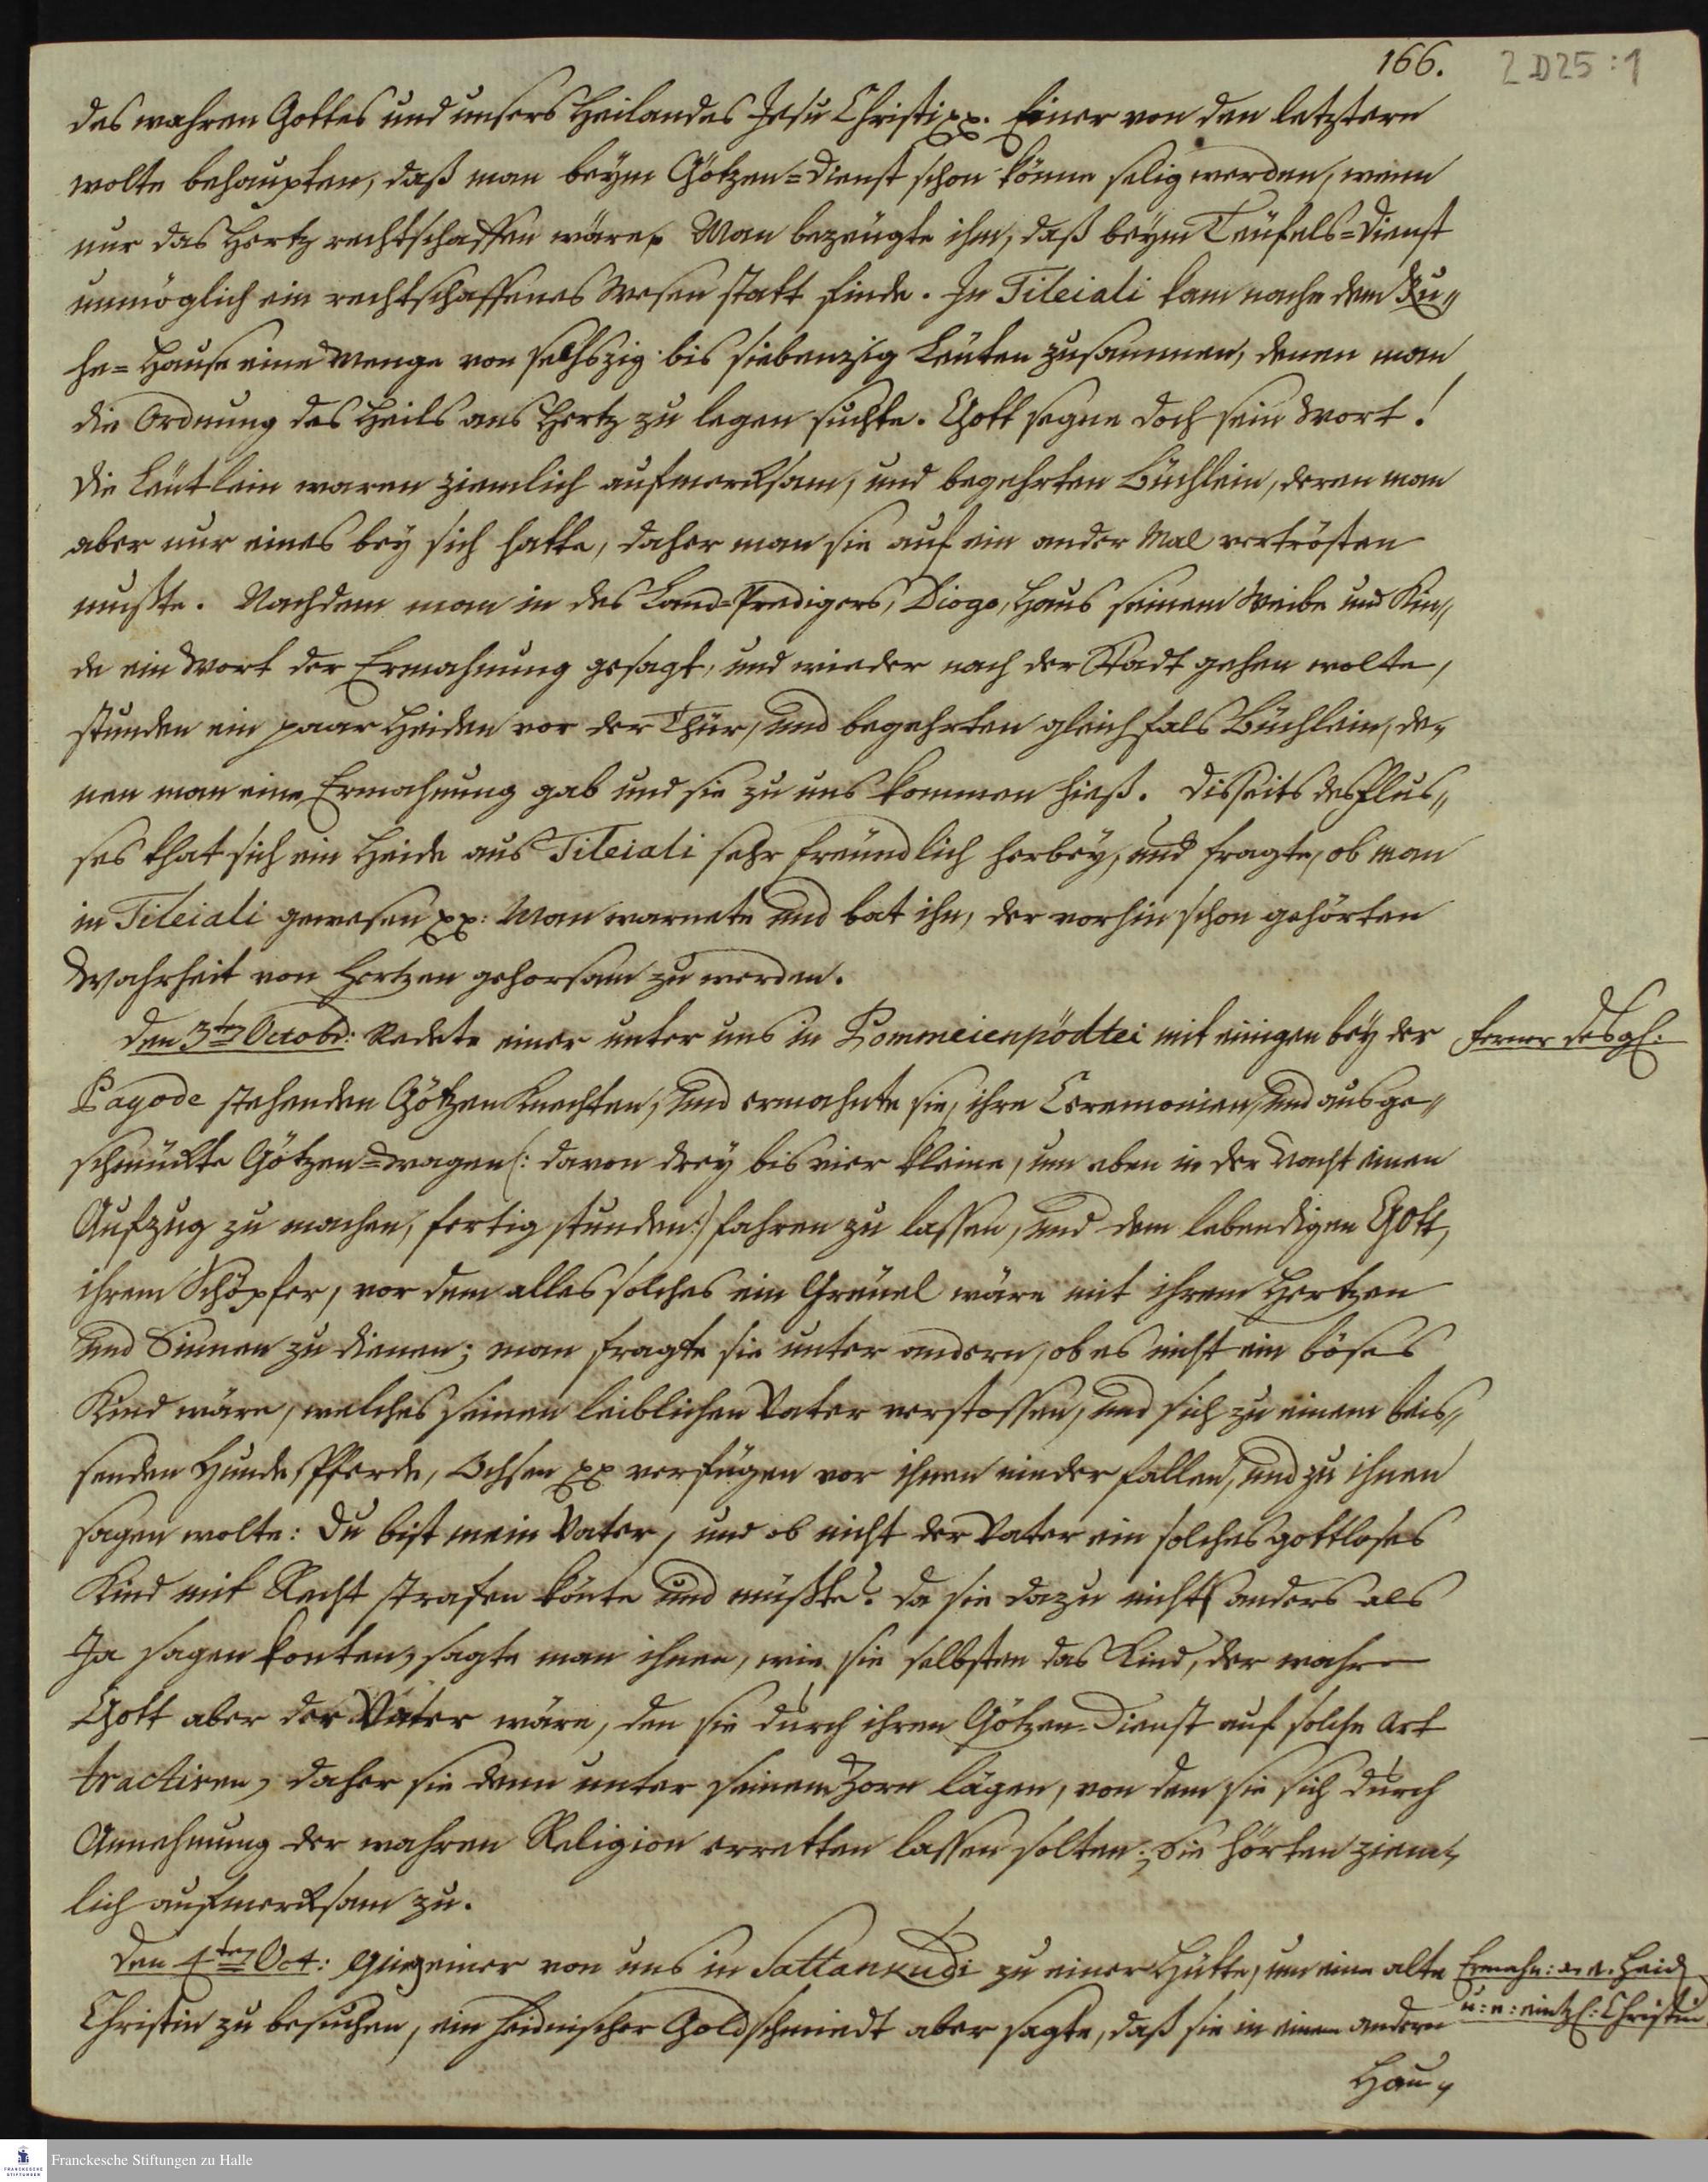 166.
2 D25 : 1
des wahren Gottes und unsers Heilandes Jesu Christi pp. Einer von den letztern
wolte behaupten, daß man beym Götzen=Dienst schon könne selig werden, wenn
nur das Hertz rechtschaffen wäre. Man bezeugte ihm, daß beym Teüfels=Dienst
unmöglich ein rechtschaffenes Wesen statt finde. In Tileiali kam nahe dem Ru„
he=Hause eine Menge von sechszig bis siebenzig Leüten zusammen, denen man
die Ordnung des Heils ans Hertz zu legen suchte. Gott segne doch sein Wort!
Die Leütlein waren ziemlich aufmercksam, und begehrten Büchlein, deren man
aber nur eines bey sich hatte, daher man sie auf ein ander Mal vertrösten
mußte. Nachdem man in des Land=Predigers, Diogo, Haus seinem Weibe und Kin„
de ein Wort der Ermahnung gesagt, und wieder nach der Stadt gehen wolte,
stunden ein paar Heiden vor der Thür, und begehrten gleichfals Büchlein, de„
nen man eine Ermahnung gab und sie zu uns kommen hieß. Disseits des Flus„
ses that sich ein Heide aus Tileiali sehr freündlich herbey, und fragte, ob man
in Tileiali gewesen pp: Man warnete und bat ihn, der vorhin schon gehörten
Wahrheit von Hertzen gehorsam zu werden.
Den 3ten Octobr: Redete einer unter uns in Pommeienpödtei mit einigen bey der
Ferner desgl:
Pagode stehenden Götzen Knechten, und ermahnte sie, ihre Ceremonien, und ausge„
schmückte Götzen=Wagen (: davon drey bis vier kleine, um eben in der Nacht einen
Aufzug zu machen, fertig stunden:) fahren zu lassen, und dem lebendigen Gott,
ihrem Schöpfer, vor dem alles solches ein Greüel wäre mit ihrem Hertzen
und Sinnen zu dienen; man fragte sie unter andern, ob es nicht ein böses
Kind wäre, welches seinen leiblichen Vater verstossen, und sich zu einem beis„
senden Hunde, Pferde, Ochsen pp verfügen vor ihnen nieder fallen, und zu ihnen
sagen wolte: Du bist mein Vater, und ob nicht der Vater ein solches gottloses
Kind mit Recht strafen könte und müßte? Da sie dazu nichts anders als
Ja sagen konten, sagte man ihnen, wie sie selbsten das Kind, der wahre
Gott aber der Vater wäre, den sie durch ihren Götzen-Dienst auf solche Art
tractiren, daher sie denn unter seinem Zorn lägen, von dem sie sich durch
Annehmung der wahren Religion erretten lassen solten. Sie hörten ziem„
lich aufmercksam zu.
Den 4ten Oct: Ging einer von uns in Sattankudi zu einer Hütte, um eine alte
Ermahn: an e. Heid
Christin zu besuchen, ein heidnischer Goldschmiedt aber sagte, daß sie in einem andern
u: Christin
Hau„
Franckesche Stiftungen zu Halle